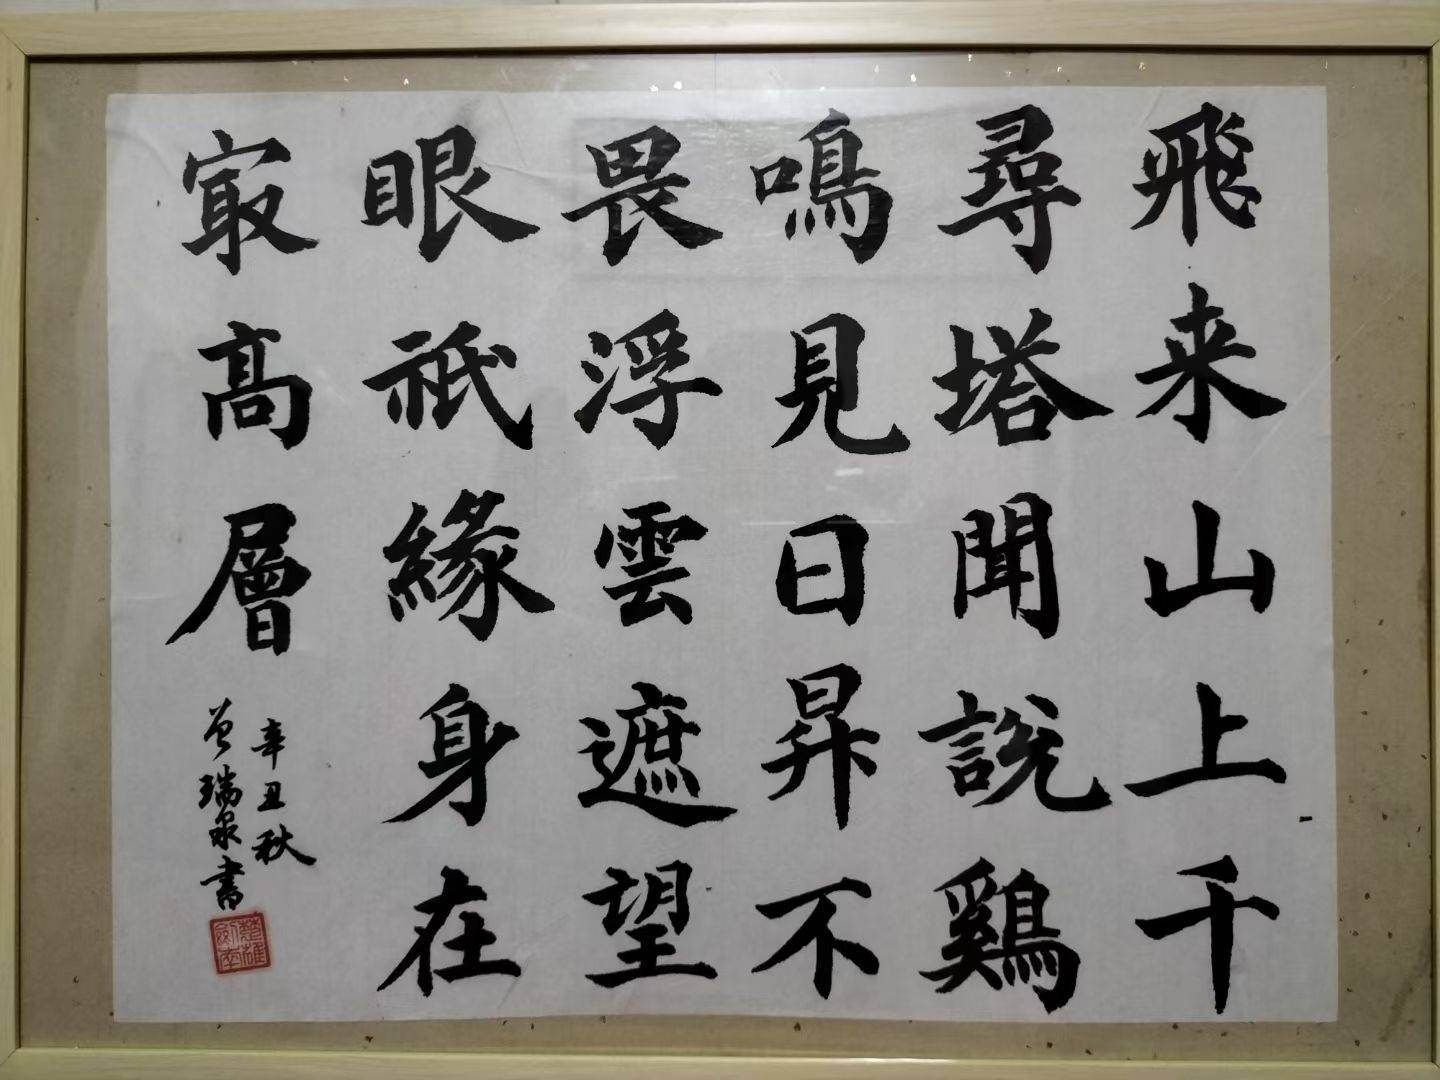 飛来山上千
尋塔聞說鷄
鳴見日昇不
畏浮雲遮望
眼祇緣身在
寂高層
辛丑秋
曾瑞泉書